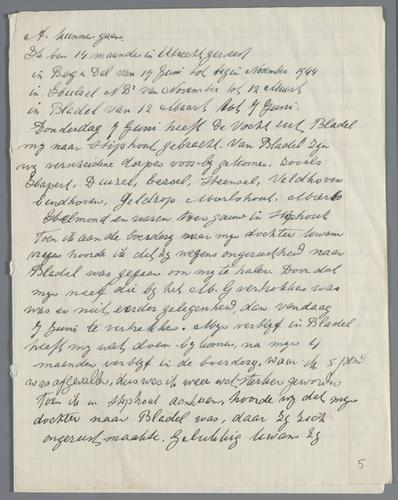 A. kunnen gaan.
Ik ben 14 maanden in Utrecht geweest
in Berg en Dal van 17 Juni tot begin November 1944
in N.B. van November tot 12 Maart
in Bladel van 12 Maart tot 7 Juni.
Donderdag 7 Juni heeft de Vocht uit Bladel
my naar Stiphout gebracht. Van Bladel zyn
wy verscheidene dorpen voorby gekomen. Zooals
Hapert, Duizel, Eersel, Steensel, Veldhoven
Eindhoven, Geldrop, Mierlohout, Mierlo
Helmond en waren toen gauw in Stiphout
Toen ik aan de boerdery naar myn dochter kwam
vragen hoorde ik dat zy wegens ongerustheid naar
Bladel was gegaan om my te halen. Doordat
myn neef die by het M.G vertrokken was
was er niet eerder gelegenheid, dan vandaag
7 Juni te vertrekken. Myn verblyf in Bladel
heeft my wat doen bykomen, na myn 4
maanden verblyf in de boerdery, waar ik 5 pond
was afgevallen, dus was ik weer wat sterker geworden
Toen ik in Stiphout aankwam, hoorde wy dat myn
dochter naar Bladel was, daar zy zich
ongerust maakte. Gelukkig kwam zy
5